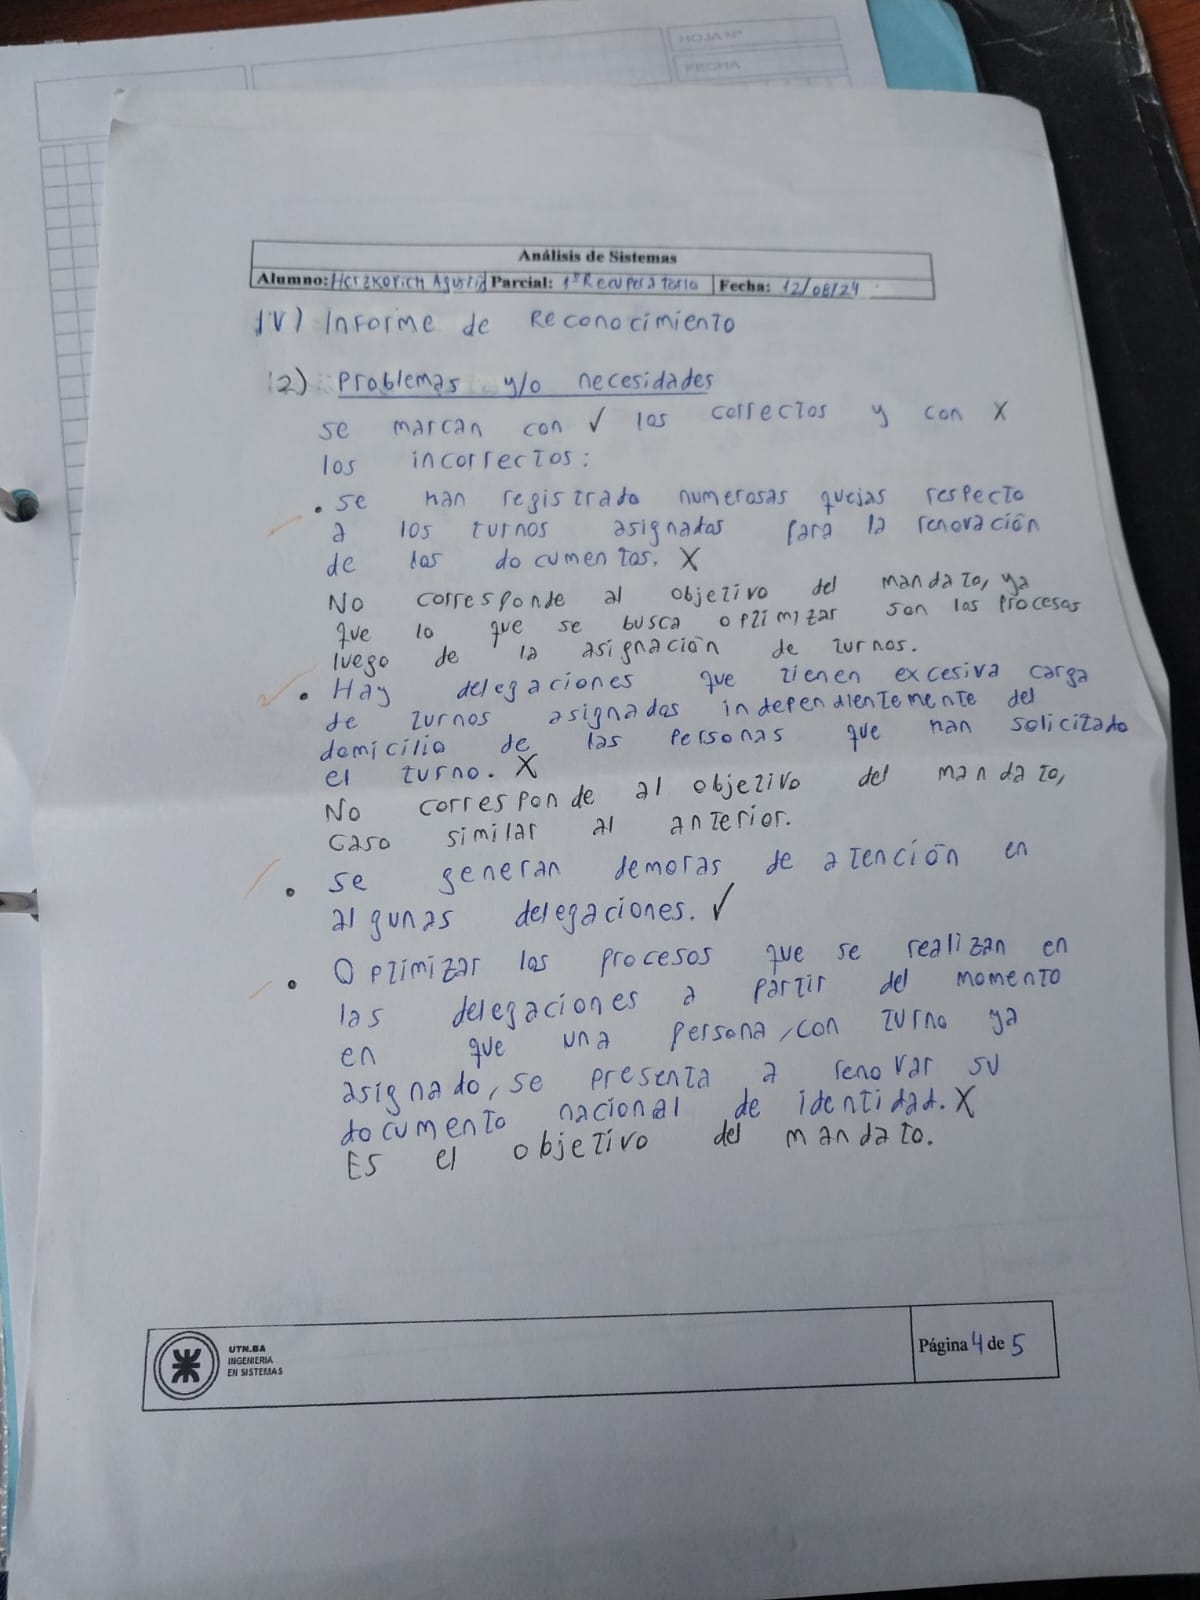 HOJA Nº
FECHA
Análisis de Sistemas
Alumno: Herzkovich Agustín Parcial: 1º Recuperatorio Fecha: 12/08/24
IV) Informe de Reconocimiento
2) Problemas y/o necesidades
se marcan con ✓ los correctos y con X
los incorrectos:
• se han registrado numerosas quejas respecto
a los turnos asignados para la renovación
de los documentos. X
No corresponde al objetivo del mandato, ya
que lo que se busca optimizar son los procesos
luego de la asignación de turnos.
• Hay delegaciones que tienen excesiva carga
de turnos asignados independientemente del
domicilio de las personas que han solicitado
el turno. X
No corresponde al objetivo del mandato,
caso similar al anterior.
• se generan demoras de atención en
algunas delegaciones. ✓
• Optimizar los procesos que se realizan en
las delegaciones a partir del momento
en que una persona, con turno ya
asignado, se presenta a renovar su
documento nacional de identidad. X
Es el objetivo del mandato.
UTN.BA
INGENIERIA
EN SISTEMAS
Página 4 de 5